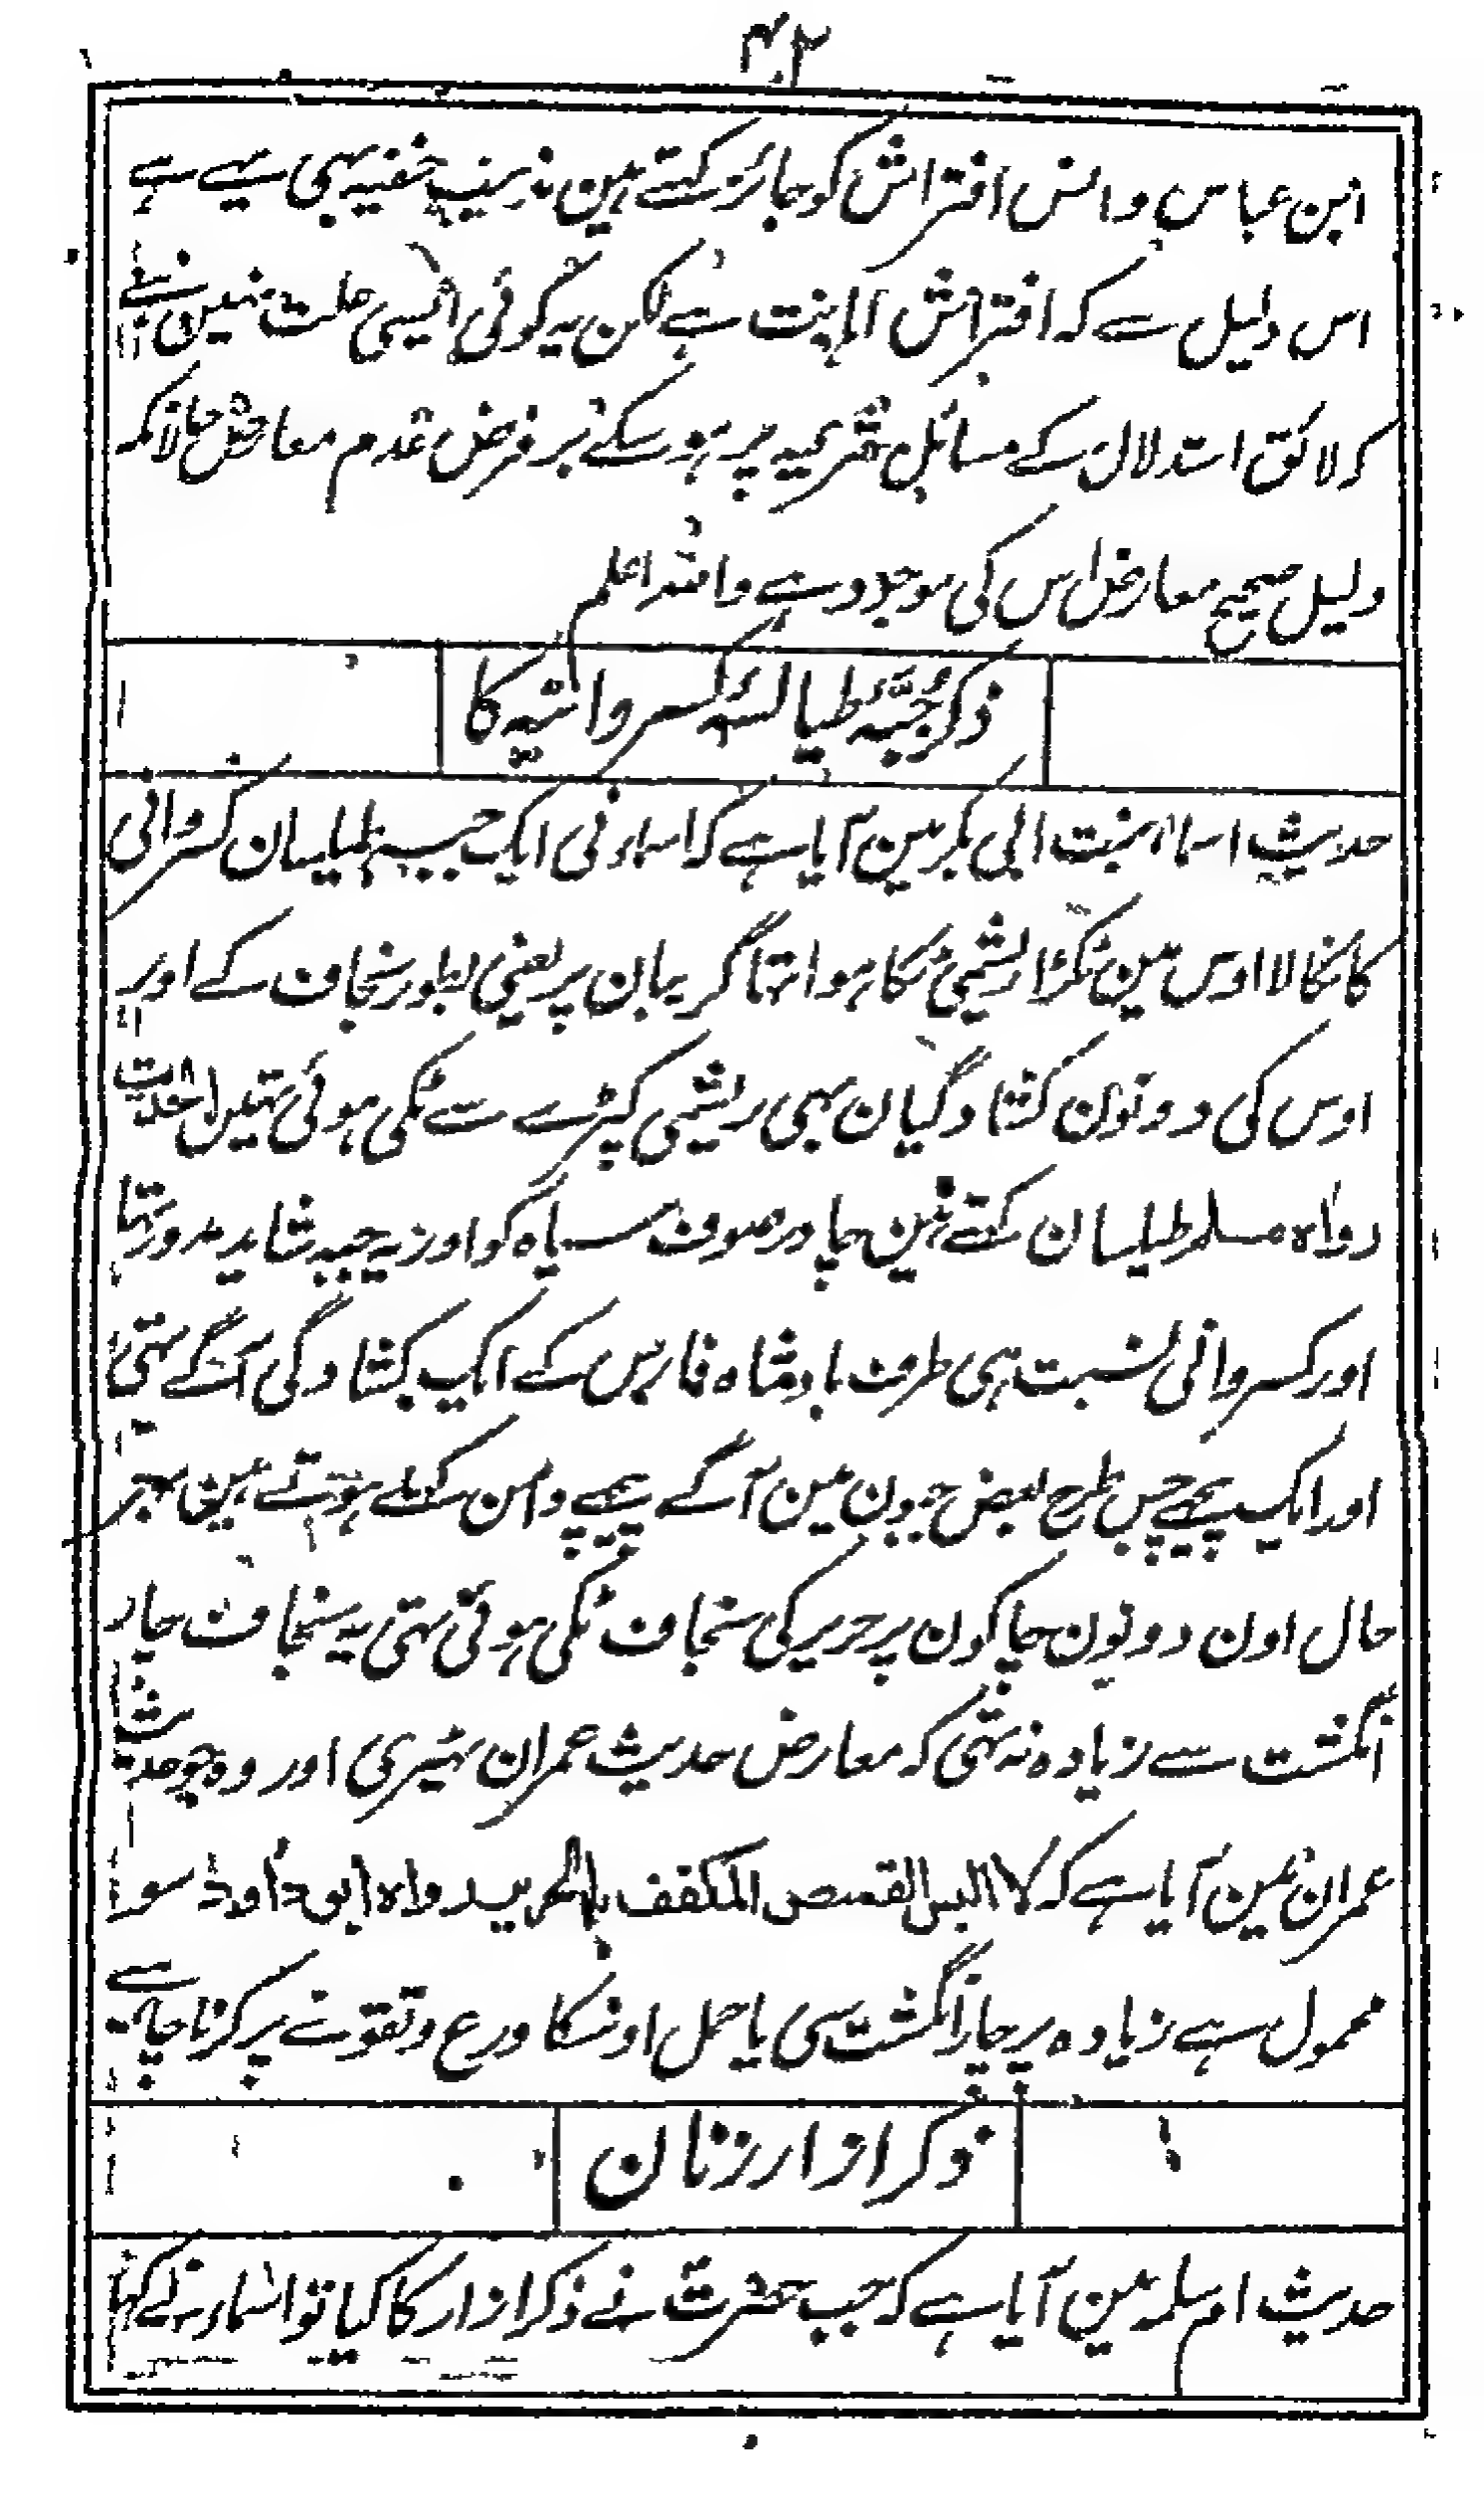 ۴۲
ابن عباس وانس افتراش کو جائز کہتے ہین مذہب حنفیہ بہی یہی ہے
اس دلیل سے کہ افتراش اہانت ہے لکن یہ کوئی ایسی علت نہین ہے
کہ لائق استدلال کے مسائل شرعیہ پر ہو سکے بر فرض عدم معارض حالانکہ
دلیل صحیح معارض اس کی موجود ہے واللہ اعلم
ذکر جُبّۂ طیالسۂ کسروانیہ کا
حدیث اسماء بنت ابی بکر مین آیا ہے کہ اسماء نی ایک جبہ طیلسان کسروانی
کا نکالا اوس مین ٹکڑا ریشمی ٹکا ہوا تہا گریبان پر یعنی بطور سنجاف کے اور
اوس کی دونون کشادگیان بہی ریشمی کپڑے سے ٹکی ہوئی تہین الحدیث
رواہ مسلم طیلسان کہتے ہین چادر صوف سیاہ کو اور یہ جبہ شاید مدور تہا
اور کسروانی نسبت ہی طرف بادشاہ فارس کے ایک کشادگی آگے تہی
اور ایک پیچہے جس طرح بعض جبون مین آگے پیچہے دامن کہلے ہوتے ہین بہر
حال اون دونون چاکون پر حریر کی سنجاف ٹکی ہوئی تہی یہ سنجاف چار
انگشت سے زیادہ نہ تہی کہ معارض حدیث عمران ٹہیری اور وہ جو حدیث
عمران مین آیا ہے کہ لا البس القمیص المکفف بالحریر رواہ ابو داود سو
محمول ہے زیادہ پر چار انگشت سی یا حمل اوسکا ورع و تقوے پر کرنا چاہیے
ذکر ازار زنان
حدیث ام سلمہ مین آیا ہے کہ جب حضرت نے ذکر ازار کا کیا تو اسماء نے کہا